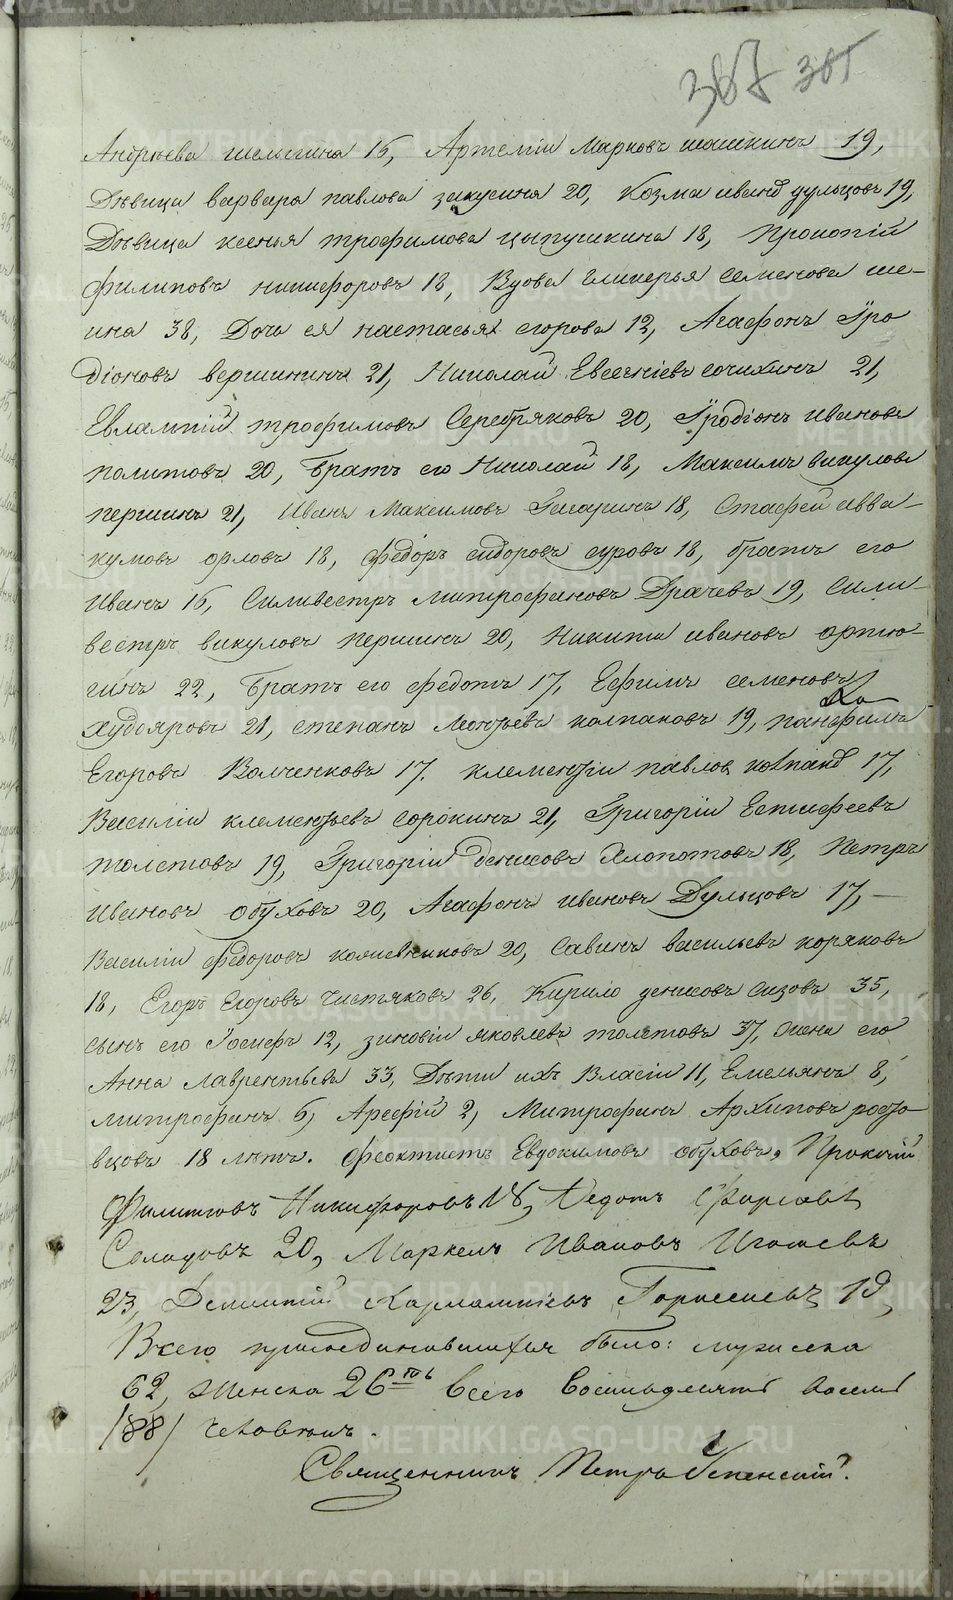 367 365
Андреева шемегина 16, Артемій Марковъ шашкинъ 19,
Дѣвица варвара павлова закусина 20, Козма иванъ дульцовъ 19,
Дѣвица ксенья трофимова цыпушкина 18, Прокопій
филиповъ никифоровъ 18, Вдова гликерья семенова ше-
ина 38, Дочь ея настасья егорова 12, Агафонъ Їро
діоновъ вершининъ 21, Николай Евсегніевъ сочихинъ 21,
Евлампій трофимовъ Серебряковъ 20, Їродіонъ ивановъ
политовъ 20, Братъ его Николай 18, Максимъ викуловъ
першинъ 21, Иванъ Максимовъ Гагаринъ 18, Стафей авва-
кумовъ орловъ 18, федоръ сидоровъ суровъ 18, братъ его
Иванъ 16, Силивестръ митрофановъ Драчевъ 19, Сили-
вестръ викуловъ першинъ 20, Никита ивановъ артю-
гинъ 22, Братъ его федотъ 17, Ефимъ семеновъ
худояровъ 21, степанъ Леонтьевъ колпаковъ 19, панфилъ
Егоровъ Волченковъ 17. клементій павлов 17,
Василій клементьевъ сорокинъ 21, Григорій Естифеевъ
толстовъ 19, Григорій денисовъ Хлопотовъ 18, Петръ
Ивановъ обуховъ 20, Агафонъ ивановъ Дульцовъ 17, —
Василій федоровъ кожевниковъ 20, Савинъ васильевъ коряковъ
18, Егоръ Егоровъ Чистяковъ 26, Кирило денисовъ сизовъ 35,
сынъ его Іосифъ 12, зиновій яковлевъ толстовъ 37, жена его
Анна лаврентьева 33, Дѣти ихъ Власій 11, Емельянъ 8,
митрофанъ 6, Арефій 2, Митрофанъ Архиповъ росто-
вцовъ 18 лѣтъ. Феоктистъ Евдокимовъ обуховъ, Прокопій
Филиповъ Никифоровъ 18, Федотъ Фирсовъ
Солодовъ 20, Маркелъ Ивановъ Игошевъ
23, Дементій Харлампіевъ 19,
Всего присоединившихся было: мужеска
62, женска 26 всего восемьдесятъ восемь
/88/ человѣкъ.
Священникъ Петръ Успенскій.
METRIKI.GASO-URAL.RU